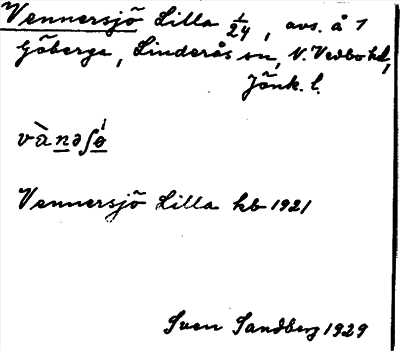 Vennersjö Lilla 1/24, avs. å 1
Göberga, Linderås sn, N. Vedbo hd,
Jönk. l.
Vennersjö Lilla hb 1921
Sven Sandberg 1929